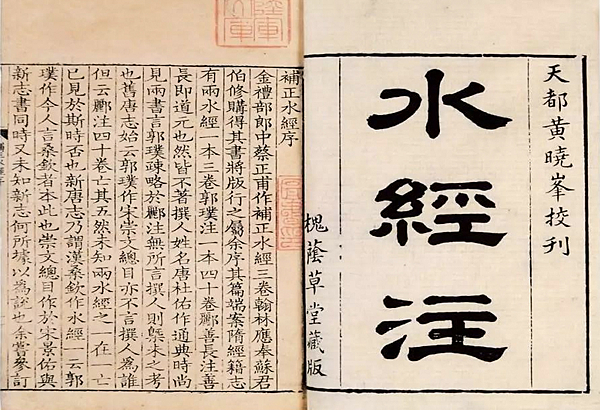 天都黄曉峯校刊
水經注
槐蔭草堂藏版
補正水經序
金禮部郎中蔡正甫作補正水經三卷翰林應奉蘇君
伯修購得其書將版行之屬余序其篇端案隋經籍志
有兩水經一本三卷郭璞注一本四十卷酈善長注善
長即道元也然皆不著撰人姓名唐杜佑作通典時尚
見兩書言郭璞疎略於酈注無所言撰人則槩未之考
也舊唐志始云郭璞作宋崇文總目亦不言撰人為誰
但云酈注四十卷亡其五然未知兩水經之一在一亡
已見於斯時否也新唐志乃謂漢桑欽作水經一云郭
璞作今人言桑欽者本此也崇文總目作於宋景佑與
新志書同時又未知新志何所據以為說也余嘗參訂